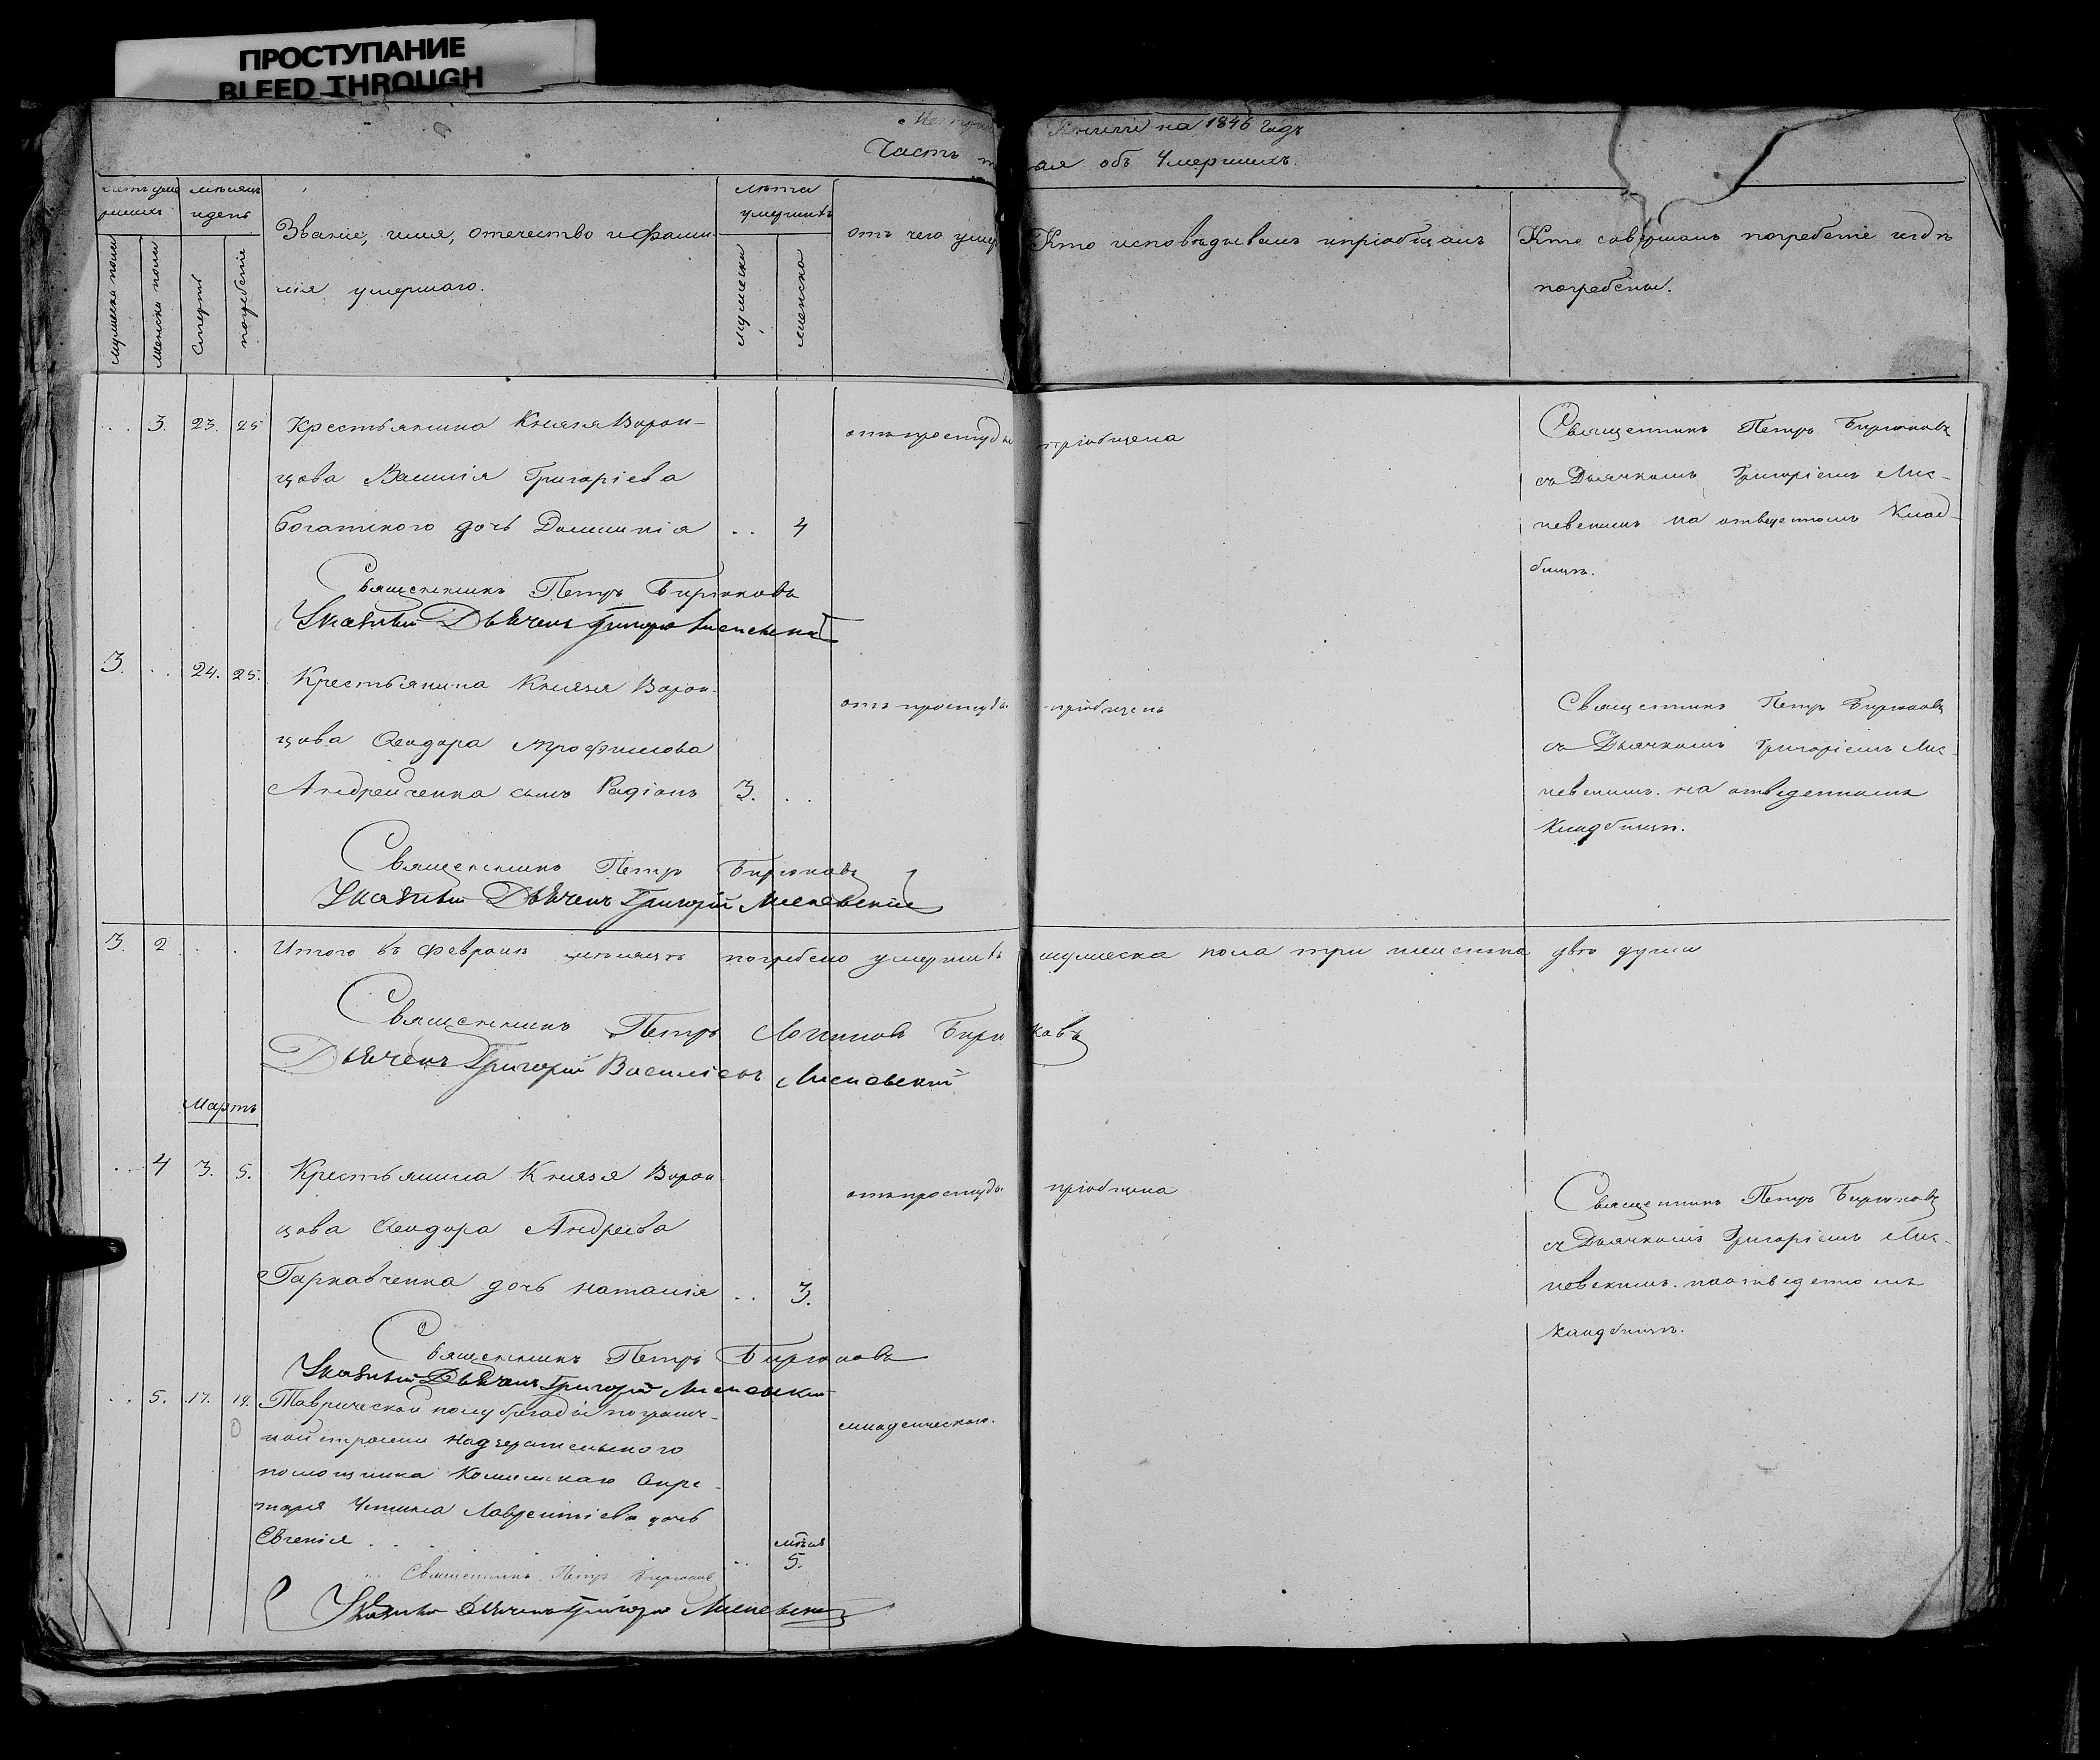 ПРОСТУПАНИЕ
BLEED THROUGH
Книги на 1846 Годъ
Часть
ая объ Умершихъ.
мѣсяцъ
и день
Мужеска пола
Женска пола
Смерть
погребеніе
Званіе, имя, отечество и фами-
лія умершаго.
Лѣта
умершихъ
мужеска
женска
отъ чего умер
Кто исповѣдывалъ и пріобщалъ
Кто совершалъ погребеніе и гдѣ
погребены.
.. 3. 23. 25
Крестьянина Князя Ворон-
цова Василія Григоріева
Богатского дочь Домникія .. 4
отъ простуды
пріобщена
Священникъ Петръ Бирюковъ
съ Дьячкомъ Григоріемъ Лис-
невскимъ на отведенномъ Клад-
бищѣ.
Священникъ Петръ Бирюковъ
Указный Дьячекъ Григорій
3. .. 24. 25.
Крестьянина Князя Ворон-
цова Ѳеодора Трофимова
Андрейченка сынъ Радіонъ 3. ..
отъ простуды
пріобщенъ
Священникъ Петръ Бирюковъ
съ Дьячкомъ Григоріемъ Лис-
невскимъ. на отведенномъ
Кладбищѣ.
Священникъ Петръ Бирюковъ
Указный Дьячекъ Григорій Лисневскій
3. 2 . .
Итого въ Февралѣ мѣсяцѣ погребено умершихъ мужеска пола три женска двѣ души
Священникъ Петръ Логиновъ Бирюковъ
Дьячекъ Григорій Василіевъ Лисневскій
Мартъ
.. 4 3. 5.
Крестьянина Князя Ворон-
цова Ѳеодора Андреева
Гаркавченка дочь Наталія .. 3.
отъ простуды
пріобщена
Священникъ Петръ Бирюковъ
съ Дьячкомъ Григоріемъ Лис-
невскимъ. на отведенномъ
Кладбищѣ.
Священникъ Петръ Бирюковъ
Указный Дьячекъ Григорій Лисневскій
.. 5. 17. 19.
Таврической полубригады погранич-
ной стражи Надзирательского
помощника Колежскаго Секре-
таря Лаврентіева дочь
Евгенія . . . .. мѣсяц 5.
младенческаго.
Священникъ Петръ Бирюковъ
Указный Дьячекъ Григорій Лисневскій